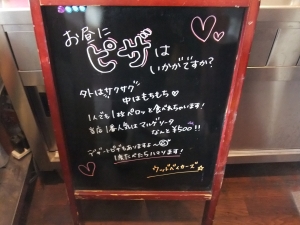 お昼に
ピザは
いかがですか?
外はザクザク
中はもちもち♡
1人でも1枚ペロッと食べれちゃいます!
当店1番人気はマルゲリータ
なんと¥500!!
デザートピザもありますよ〜
1度たべたらハマります!
ウッドベイカーズ☆